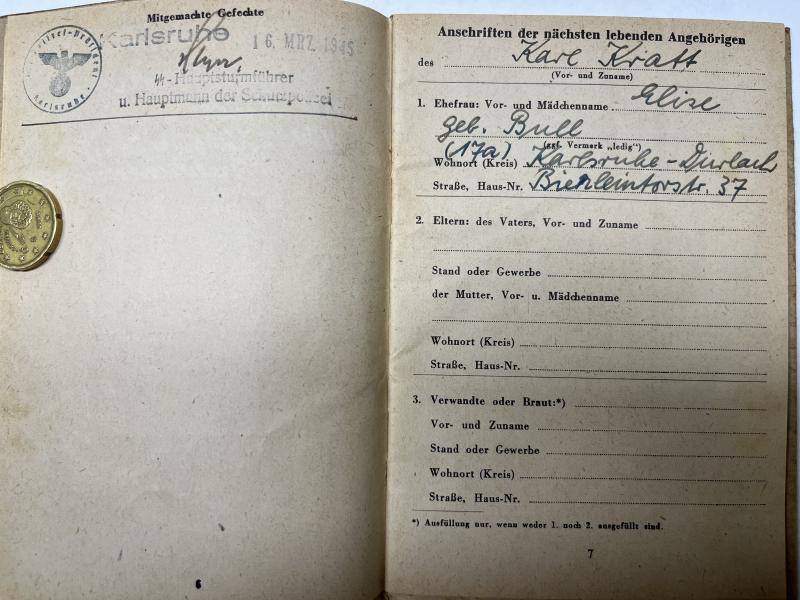 Mitgemachte Gefechte
Karlsruhe 16. MRZ. 1945
ᛋᛋ-Hauptsturmführer
u. Hauptmann der Schutzpolizei
Karlsruhe
6
Anschriften der nächsten lebenden Angehörigen
des Karl Kratt
(Vor- und Zuname)
1. Ehefrau: Vor- und Mädchenname Elise
geb. Bull
(ggf. Vermerk „ledig")
(17a)
Wohnort (Kreis) Karlsruhe-Durlach
Straße, Haus-Nr. Bienleintorstr. 37
2. Eltern: des Vaters, Vor- und Zuname
Stand oder Gewerbe
der Mutter, Vor- u. Mädchenname
Wohnort (Kreis)
Straße, Haus-Nr.
3. Verwandte oder Braut:*)
Vor- und Zuname
Stand oder Gewerbe
Wohnort (Kreis)
Straße, Haus-Nr.
*) Ausfüllung nur, wenn weder 1. noch 2. ausgefüllt sind.
7